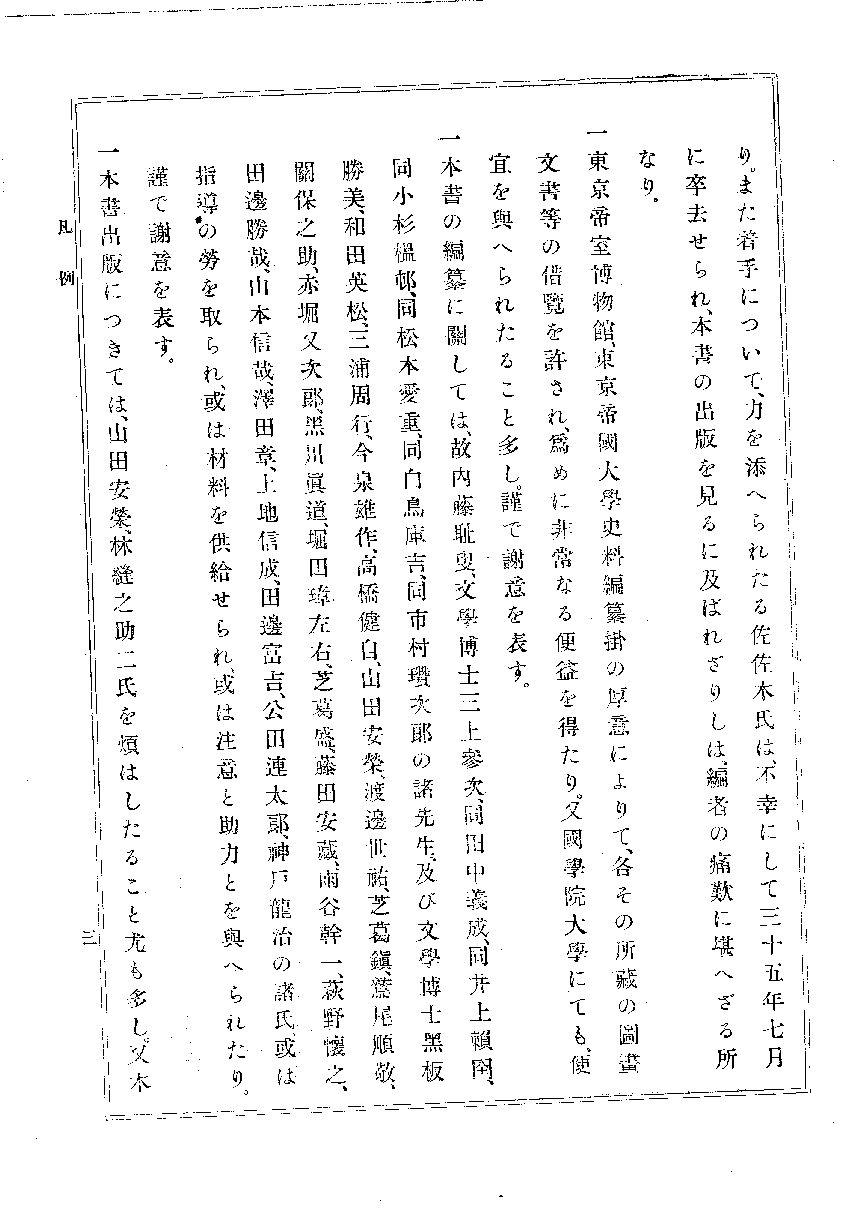 り。また着手について、力を添へられたる佐佐木氏は、不幸にして三十五年七月
に卒去せられ、本書の出版を見るに及ばれざりしは、編者の痛歎に堪へざる所
なり。
一東京帝室博物館、東京帝國大學史料編纂掛の厚意によりて、各その所藏の圖書
文書等の借覽を許され、爲めに非常なる便益を得たり。又國學院大學にても、便
宜を與へられたること多し。謹で謝意を表す。
一本書の編纂に關しては、故內藤耻叟、文學博士三上參次、同田中義成、同井上賴囶、
同小杉榲邨、同松本愛重、同白鳥庫吉、同市村瓚次郞の諸先生、及び文學博士黑板
勝美、和田英松、三浦周行、今泉雄作、高橋健自、山田安榮、渡邊世祐、芝葛鎭、鷲尾順敬、
關保之助、赤堀又次郞、黑川眞道、堀田璋左右、芝葛盛、藤田安藏、雨谷幹一、萩野懷之、
田邊勝哉、山本信哉、澤田章、上地信成、田邊富吉、公田連太郞、神戶龍治の諸氏、或は
指導の勞を取られ、或は材料を供給せられ、或は注意と助力とを與へられたり。
謹で謝意を表す。
一本書出版につきては、山田安榮、林縫之助二氏を煩はしたること尤も多し。又本
凡例
三